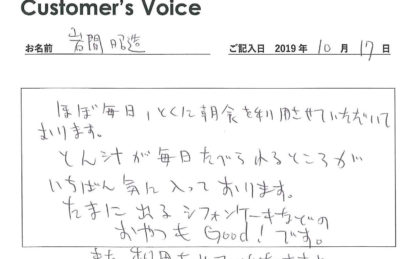 Customer's Voice
お名前 岩間昭造 ご記入日 2019年10月17日
ほぼ毎日、とくに朝食を利用させていただいて
おります。
とん汁が毎日たべられるところが
いちばん気に入っております。
たまに出る シフォンケーキなどの
おやつも Good! です。